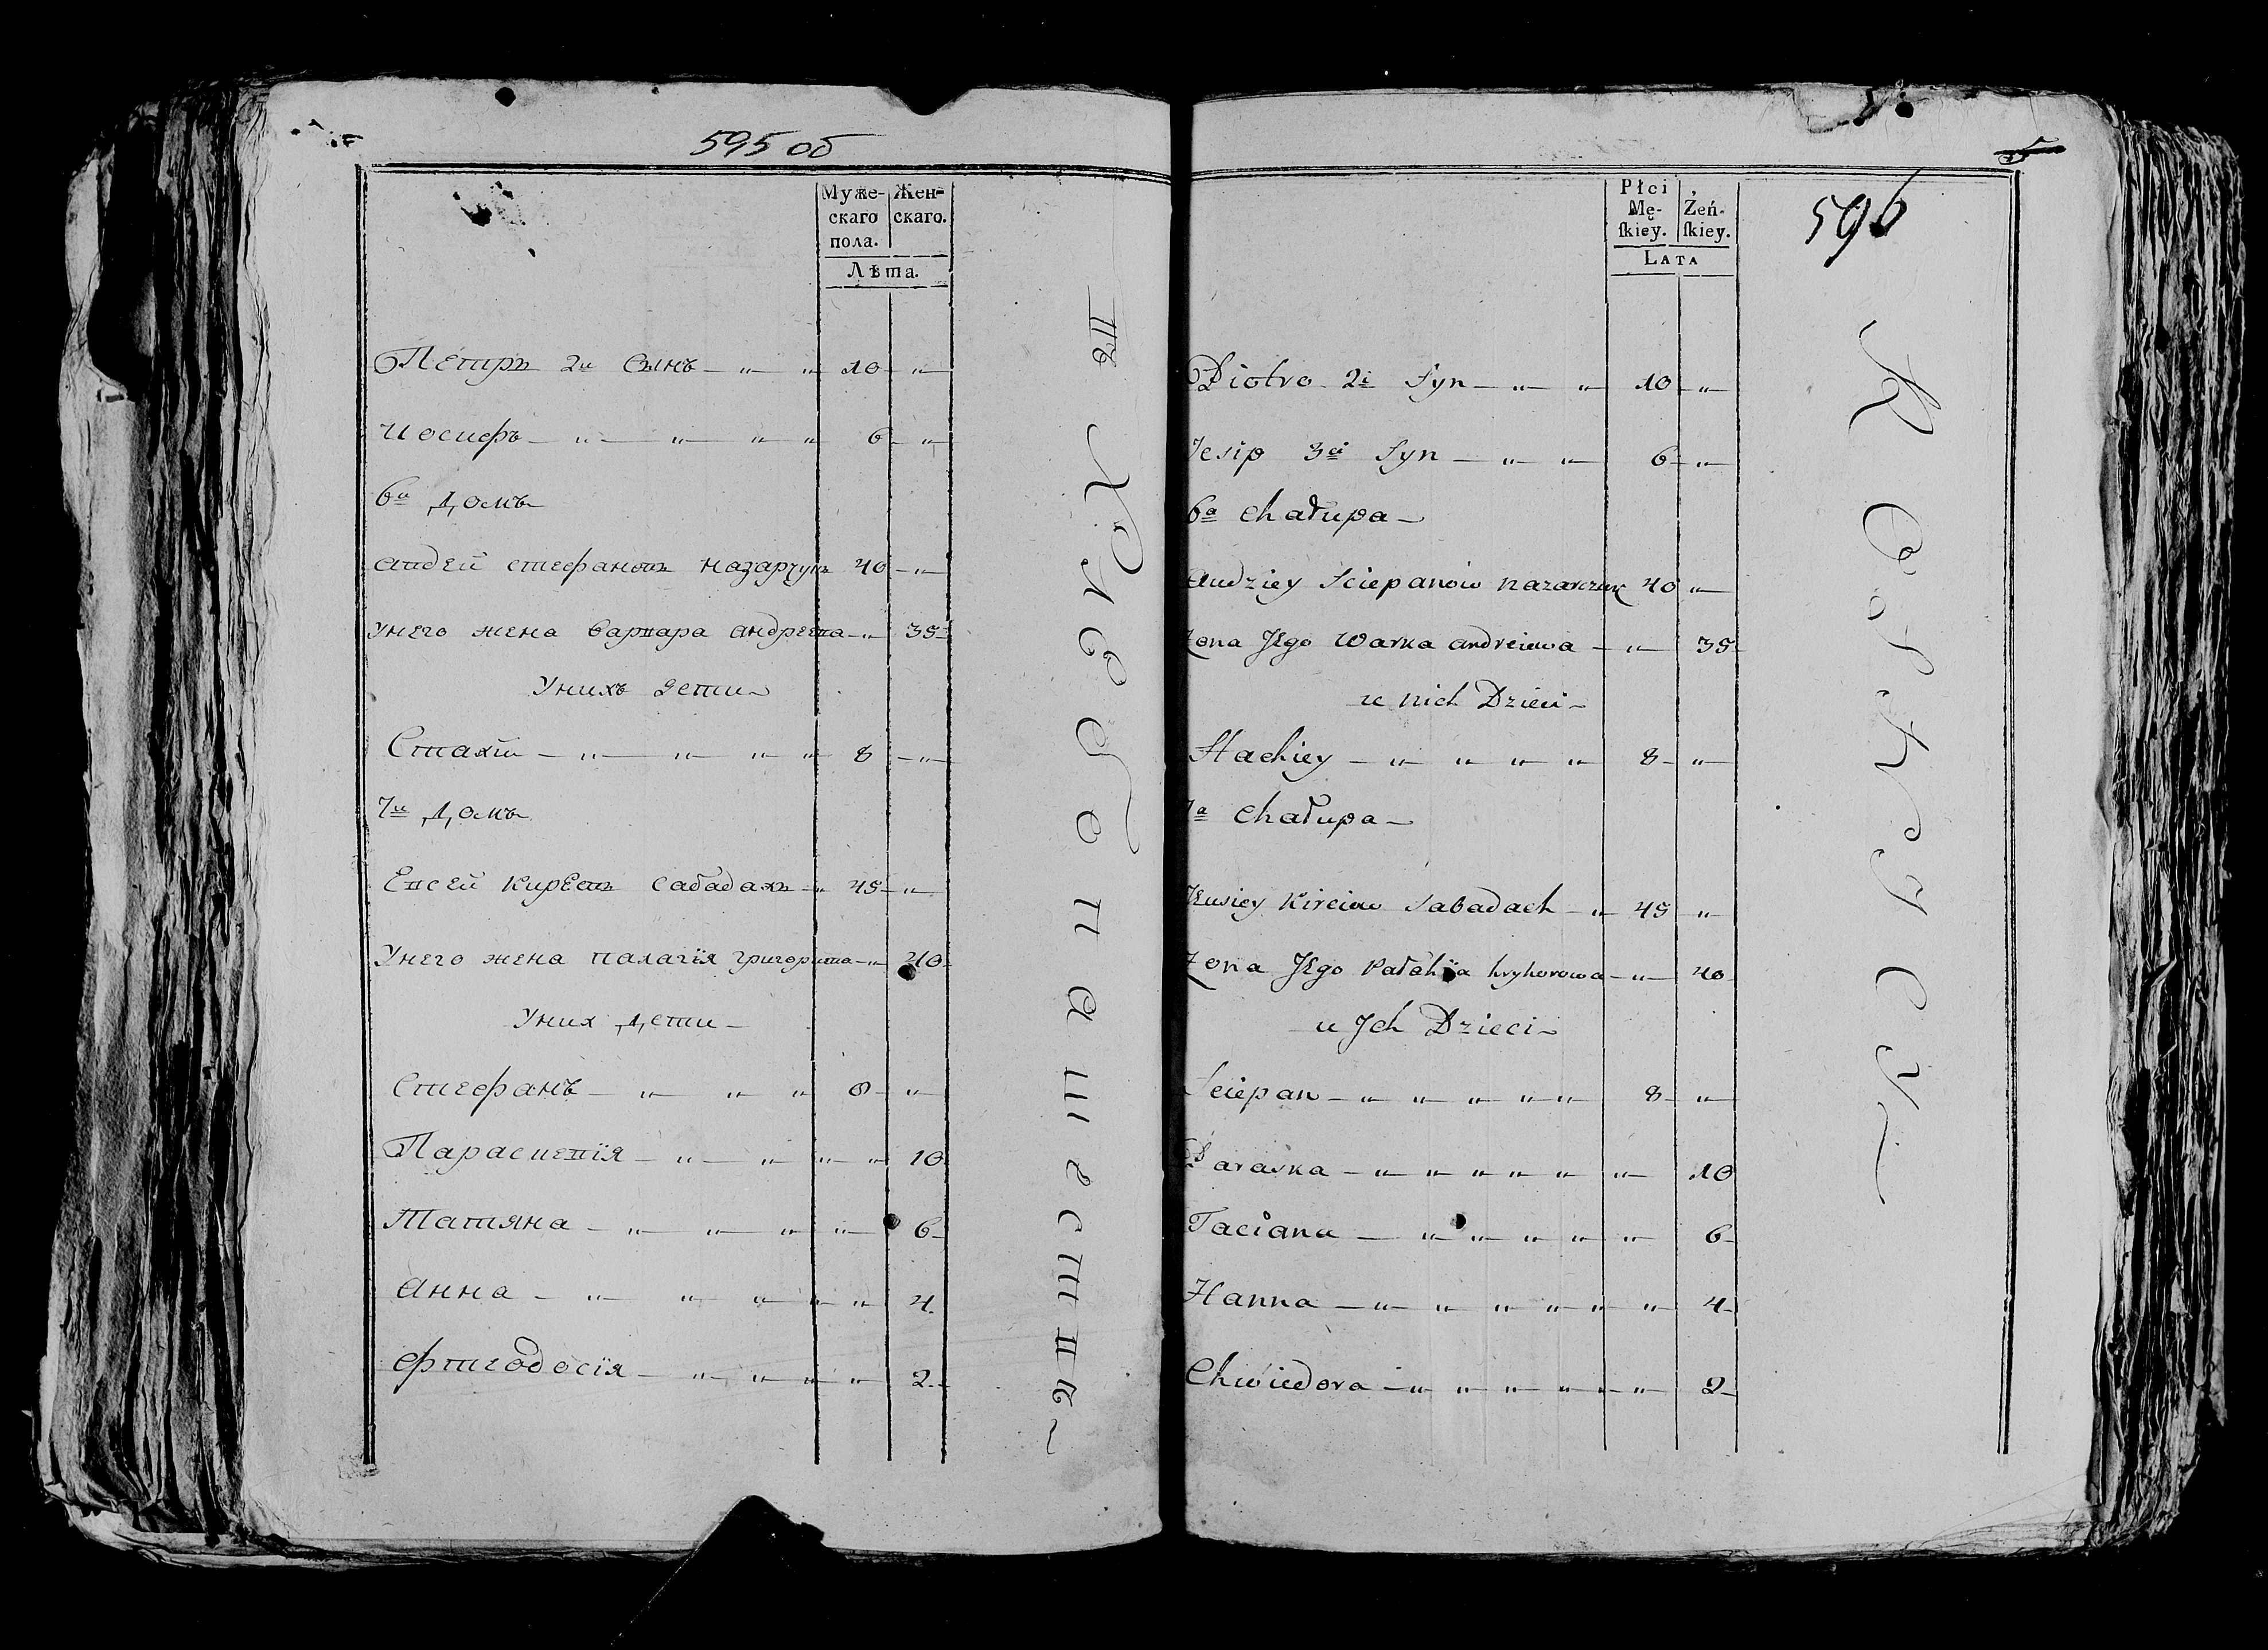 595 об
Муже-
скаго
пола.
Жен-
скаго.
Лѣта.
Петръ 2й Сынъ — " — " 10 — "
Иосифъ — " — " — " — " 6 — "
6й Домъ
Андей Стефановъ Назарчукъ 40 — "
Унего жена Варвара Андреева — " — 35
Унихъ дети
Стахій — " — " — " — " 8 — "
7й Домъ
Евсей Киреевъ Сабадахъ — " 45 — "
Унего жена Палагія Григорива — " — 40
Уних Дети —
Стефанъ — " — " — " 8 — "
Парасцевія — " — " — " — " 10
Татяна — " — " — " — " 6
Анна — " — " — " — " — " 4
Фтеодосія — " — " — " — " 2
596
Płci
Mę-
ſkiey.
Żeń-
ſkiey.
Lata
Piotro 2i Syn — " — " 10 — "
Jesip 3ci Syn — " — " 6 — "
6a Chałupa —
Andziey Sciepanów Nazarczuk 40 "
Zona Jego Warka Andreiewa — " — 35
u nich Dzieci —
Stachiey — " — " — " — " 8 — "
7a Chałupa —
Jewsiey Kireiew Sabadach — " 45 "
Zona Jego Pałahia hryhorowa — " — 40
u Jch Dzieci —
Sciepan — " — " — " — " — " 8 — "
Paraska — " — " — " — " — " — " 10
Taciana — " — " — " — " — " 6
Hanna — " — " — " — " — " — " 4
Chwiedora — " — " — " — " — " — " 2